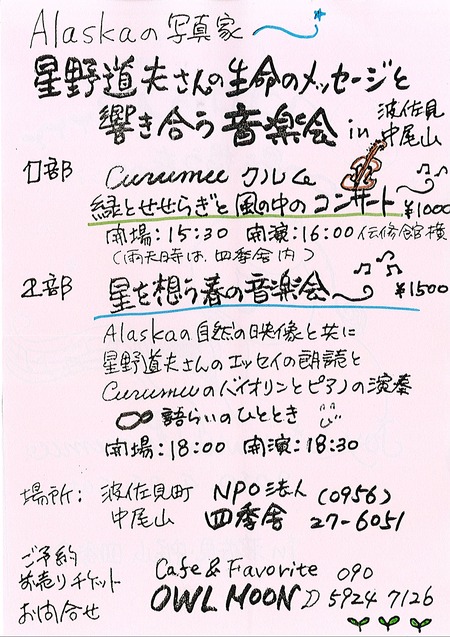 Alaskaの写真家
星野道夫さんの生命のメッセージと
響き合う音楽会 in 波佐見
中尾山
I部 Curumu クルム
緑とせせらぎと風の中のコンサート ¥1000
開場:15:30 開演:16:00 伝修館横
(雨天時は、四季舎内)
II部 星を想う春の音楽会 ¥1500
Alaskaの自然の映像と共に
星野道夫さんのエッセイの朗読と
Curumuのバイオリンとピアノの演奏
∞ 語らいのひととき
開場:18:00 開演:18:30
場所: 波佐見町 NPO法人 (0956)
中尾山 四季舎 27-6051
ご予約
お売りチケット Cafe & Favorite 090
お問合せ OWL MOON 5924 7126